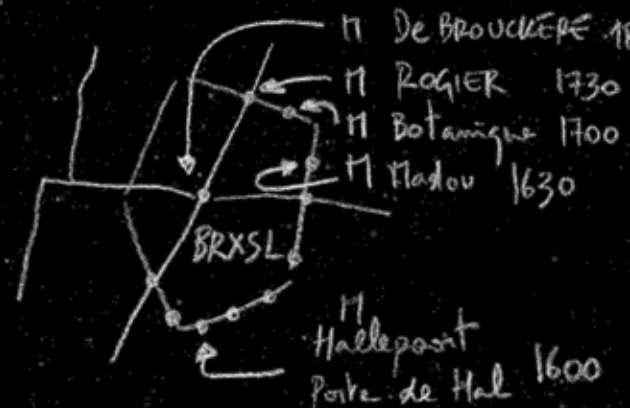 M De BROUCKÈRE 18
M ROGIER 1730
M Botanique 1700
M Madou 1630
BRXSL
M
Hallepoort
Porte de Hal 1600